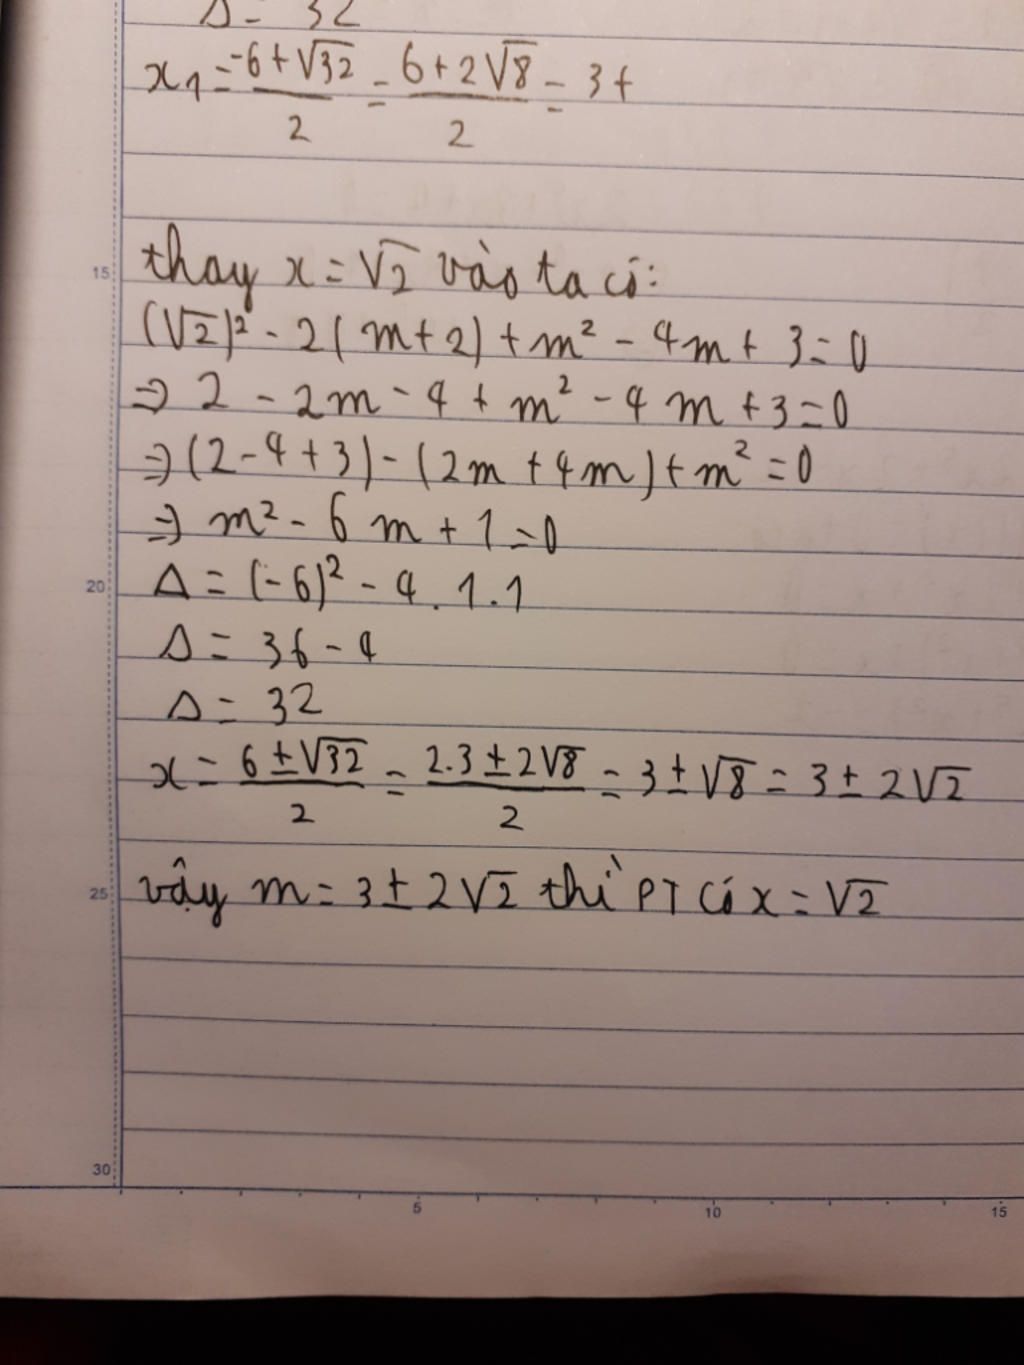 Δ = 32
x₁ = (-6+√32)/2 = (6+2√8)/2 = 3+
thay x = √2 vào ta có:
(√2)² - 2(m+2) + m² - 4m + 3 = 0
⇒ 2 - 2m - 4 + m² - 4m + 3 = 0
⇒ (2-4+3) - (2m+4m) + m² = 0
⇒ m² - 6m + 1 = 0
Δ = (-6)² - 4.1.1
Δ = 36 - 4
Δ = 32
x = (6±√32)/2 = (2.3±2√8)/2 = 3±√8 = 3±2√2
vậy m = 3±2√2 thì PT có x = √2
15
20
25
30
5 10 15